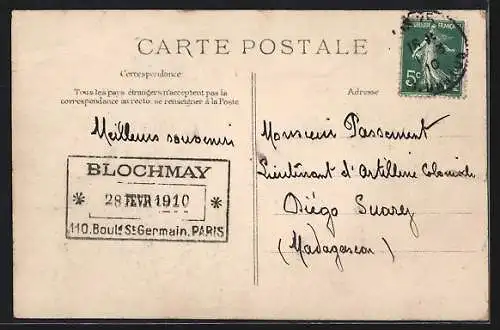 CARTE POSTALE
Correspondance
Tous les pays étrangers n'acceptent pas la
correspondance au recto, se renseigner à la Poste
Adresse
5c
Meilleurs souvenirs
BLOCHMAY
* 28 FEVR 1910 *
110. Boulᵈ St Germain. PARIS
Monsieur Passement
Lieutenant d'Artillerie Coloniale
Diégo Suarez
(Madagascar)